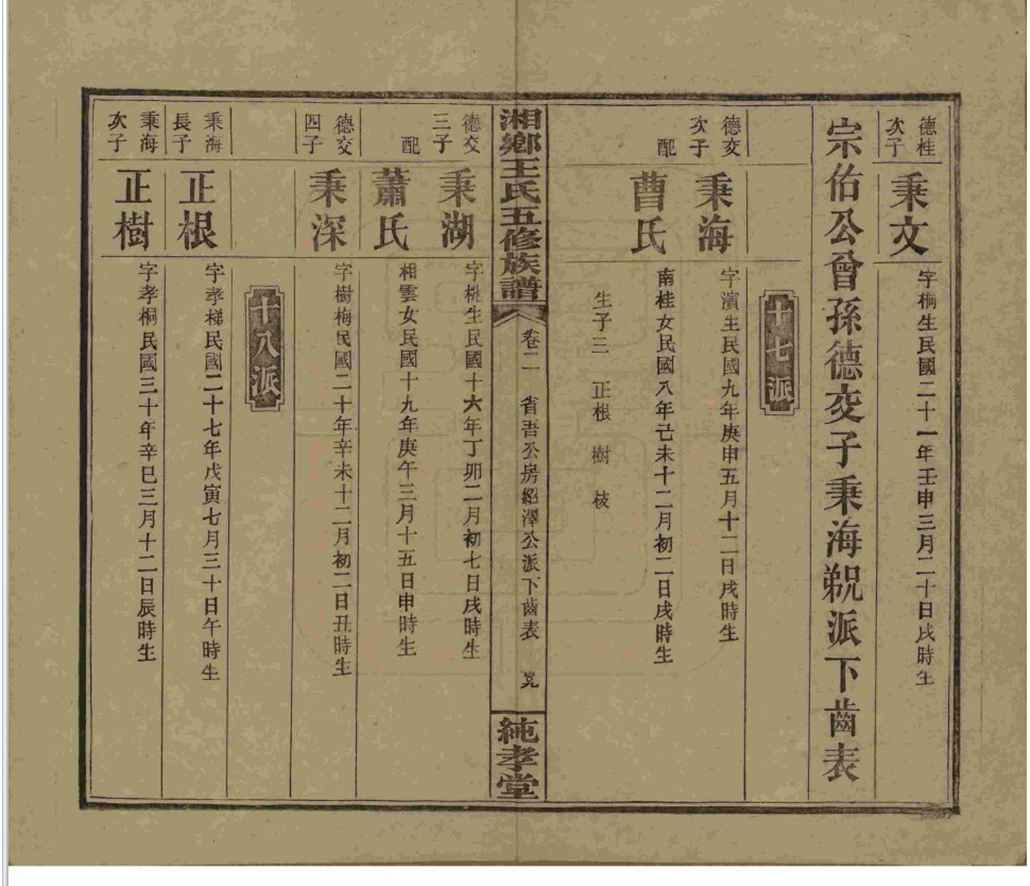 德桂
次子
秉文
字桐生民國二十一年壬申三月二十日戌時生
宗佑公曾孫德交子秉海䙺派下齒表
十七派
德交
次子
秉海
字濱生民國九年庚申五月十二日戌時生
配
曹氏
南桂女民國八年己未十二月初二日戌時生
生子三 正根 樹 枝
湘鄉王氏五修族譜
卷二 省吾公房紹澤公派下齒表
純孝堂
德交
三子
秉湖
字桃生民國十六年丁卯二月初七日戌時生
配
蕭氏
相雲女民國十九年庚午三月十五日申時生
德交
四子
秉深
字樹梅民國二十年辛未十二月初二日丑時生
十八派
秉海
長子
正根
字孝梯民國二十七年戊寅七月三十日午時生
秉海
次子
正樹
字孝桐民國三十年辛巳三月十二日辰時生